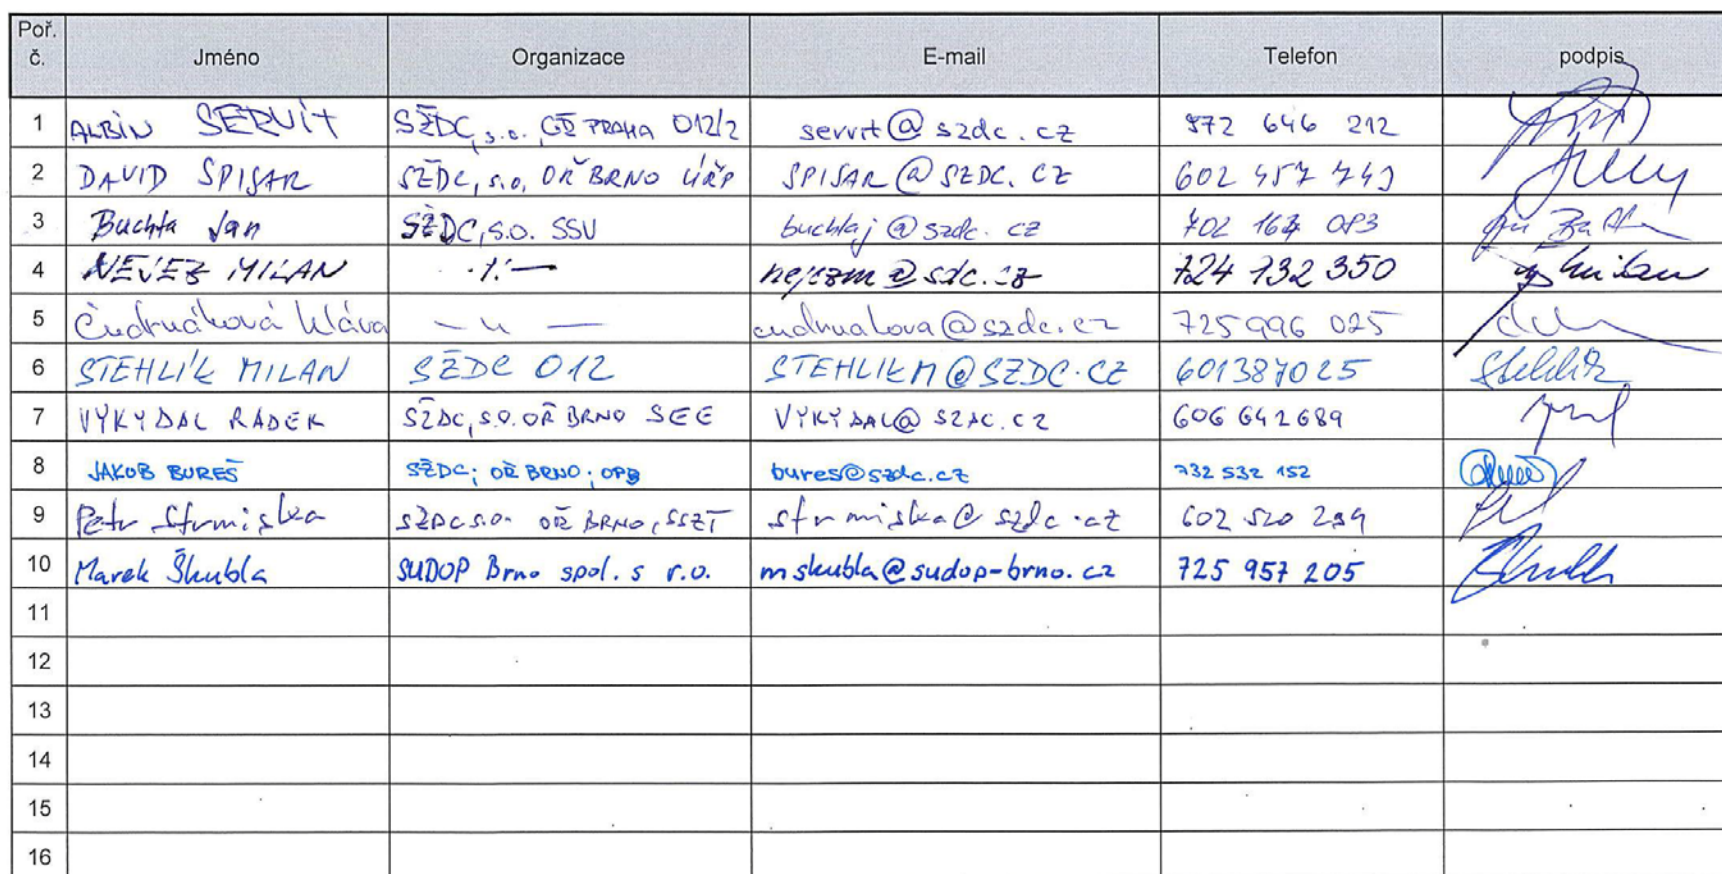 Poř. č. Jméno Organizace E-mail Telefon podpis
1 ALBIN SERVÍT SŽDC, s.o., GŘ PRAHA O12/2 servit@szdc.cz 972 646 212
2 DAVID SPISAR SŽDC, s.o, OŘ BRNO ÚŘP SPISAR@SZDC.CZ 602 457 743
3 Buchta Jan SŽDC, s.o. SSV buchtaj@szdc.cz 702 167 083
4 NEJEZ MILAN -·/.- nejezm@sdc.cz 724 132 350
5 Čudrnáková Klára — " — cudrnakova@szdc.cz 725 996 025
6 STEHLÍK MILAN SŽDC O12 STEHLIKM@SZDC.CZ 601387025
7 VYKYDAL RADEK SŽDC, s.o. OŘ BRNO SEE VYKYDAL@SZDC.CZ 606 642 689
8 JAKUB BUREŠ SŽDC; OŘ BRNO; OPB bures@szdc.cz 732 532 152
9 Petr Strmiska SŽDC s.o. OŘ BRNO, SSZT strmiska@szdc.cz 602 520 299
10 Marek Škubla SUDOP Brno spol. s r.o. mskubla@sudop-brno.cz 725 957 205
11
12
13
14
15
16